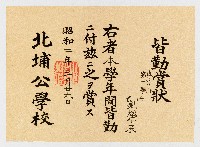 皆勤賞狀
右者本學年間皆勤
ニ付玆ニ之ヲ賞ス
昭和二年三月廿六日
北埔公學校